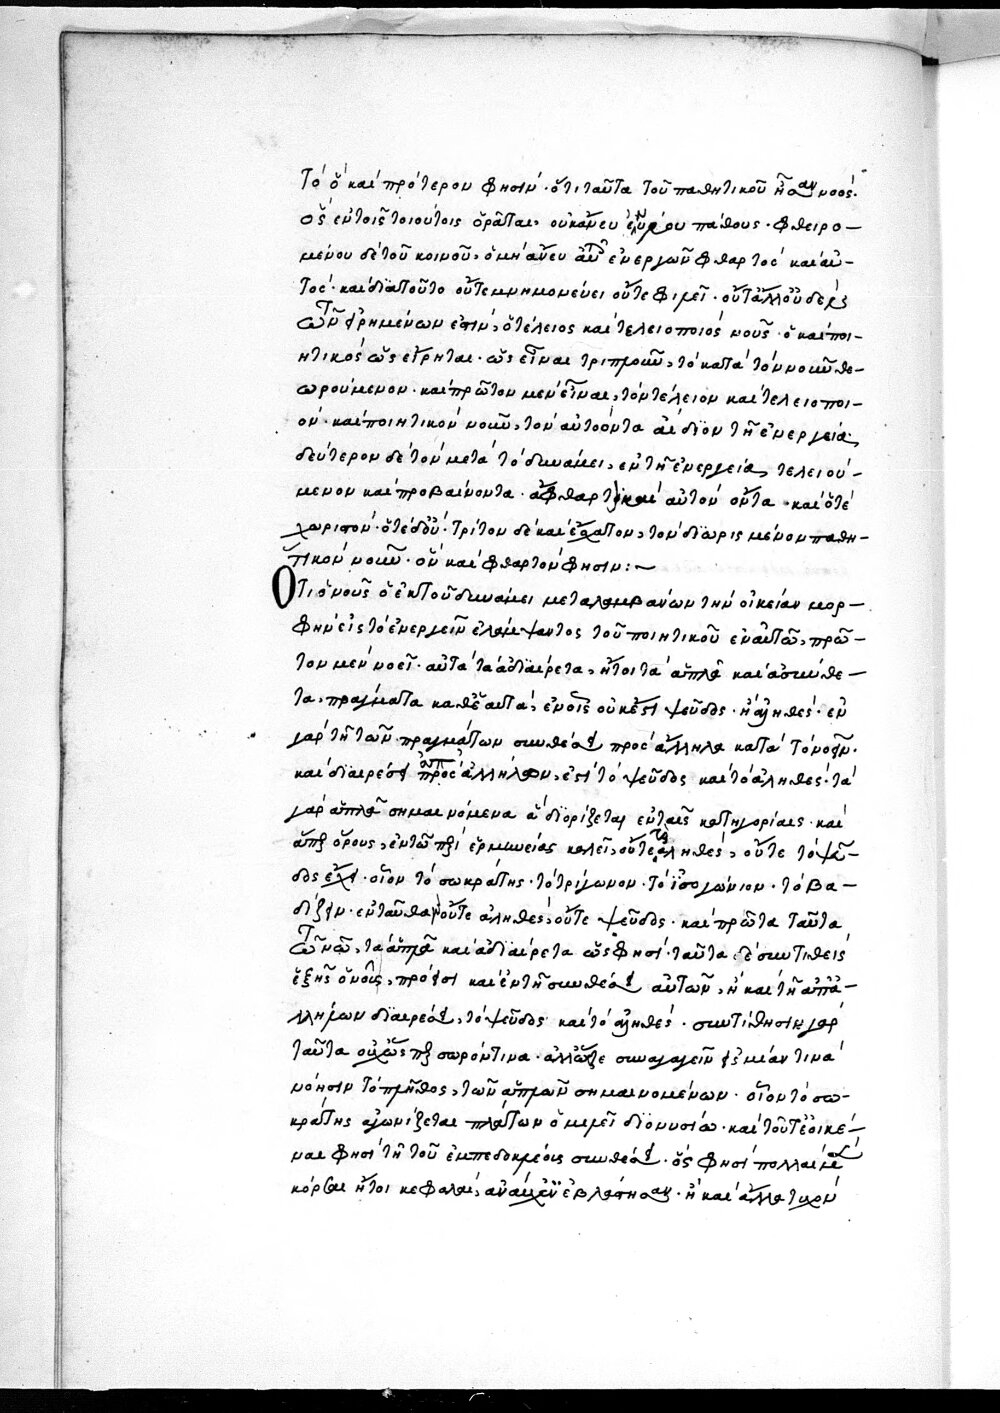 Τὸ ὃ καὶ πρότερον φησίν· ὅτι ταῦτα τοῦ παθητικοῦ ἦσαν νοός·
ὃς ἐν τοῖς τοιούτοις ὁρᾶται, οὐκ ἄνευ πάθους· φθειρο-
μένου δὲ τοῦ κοινοῦ, ὁ μὴ ἄνευ αὐτοῦ ἐνεργῶν φθαρτός καὶ αὐ-
τός· καὶ διὰ τοῦτο οὔτε μνημονεύει οὔτε φιλεῖ· οὔτ' ἄλλο οὐδὲν
τῶν εἰρημένων ἐστίν, ὁ τέλειος καὶ τελειοποιὸς νοῦς· ὁ καὶ ποι-
ητικὸς ὡς εἴρηται· ὡς εἶναι τριπλοῦν, τὸ κατὰ τὸν νοῦν θε-
ωρούμενον· καὶ πρῶτον μὲν εἶναι, τὸν τέλειον καὶ τελειοποι-
όν· καὶ ποιητικὸν νοῦν, τὸν αὐτοόντα ἀΐδιον τῇ ἐνεργείᾳ,
δεύτερον δὲ τὸν μετὰ τὸ δυνάμει, ἐν τῇ ἐνεργείᾳ τελειού-
μενον καὶ προβαίνοντα· ἄφθαρτον καὶ αὐτὸν ὄντα· καὶ ὁτὲ
χωριστόν· ὁτὲ δ' οὔ· τρίτον δὲ καὶ ἔσχατον, τὸν διωρισμένον παθη-
τικὸν νοῦν· ὃν καὶ φθαρτὸν φησίν:~
Ὅτι ὁ νοῦς ὁ ἐκ τοῦ δυνάμει μεταλαμβάνων τὴν οἰκείαν μορ-
φὴν εἰς τὸ ἐνεργεῖν ἐλλάμψαντος τοῦ ποιητικοῦ ἐν αὐτῷ, πρῶ-
τον μὲν νοεῖ· αὐτὰ τὰ ἀδιαίρετα, ἤτοι τὰ ἁπλᾶ καὶ ἀσύνθε-
τα, πράγματα καθ' ἑαυτά, ἐν οἷς οὐκ ἔστι ψεῦδος· ἢ ἀληθές· ἐν
γὰρ τῇ τῶν πραγμάτων συνθέσει πρὸς ἄλληλα κατὰ τὸ νοεῖν·
καὶ διαιρέσει ἀπ' ἀλλήλων, ἐστὶ τὸ ψεῦδος καὶ τὸ ἀληθές· τὰ
γὰρ ἁπλᾶ σημαινόμενα ἃ διορίζεται ἐν ταῖς κατηγορίαις· καὶ
ἅπερ ὅρους, ἐν τῷ περὶ ἑρμηνείας καλεῖ, οὔτε τὸ ἀληθές, οὔτε τὸ ψεῦ-
δος ἔχει· οἷον τὸ σωκράτης· τὸ τρίγωνον· τὸ ἰσογώνιον· τὸ βα-
δίζειν· ἐνταῦθα οὔτε ἀληθές, οὔτε ψεῦδος· καὶ πρῶτα ταῦτα
τῷ νῷ, τὰ ἁπλᾶ καὶ ἀδιαίρετα ὥς φησι· ταῦτα δὲ συντιθεὶς
ἑξῆς ὁ νοῦς, πρόεισι καὶ ἐν τῇ συνθέσει αὐτῶν, ἢ καὶ τῇ ἀπ' ἀ-
λλήλων διαιρέσει, τὸ ψεῦδος καὶ τὸ ἀληθές· συντίθησιν γὰρ
ταῦτα οὐχ ὡς περ σωρόν τινα· ἀλλ' ὥστε συναγαγεῖν εἰς μίαν τινὰ
νόησιν τὸ πλῆθος, τῶν ἁπλῶν σημαινομένων· οἷον τὸ σω-
κράτης ἀγωνίζεται πλάτων ὁμιλεῖ διονυσίῳ· καὶ τοῦτ' ἐοικέ-
ναι φησὶ τῇ τοῦ ἐμπεδοκλέους συνθέσει· ὅς φησι πολλαὶ μὲν
κόρσαι ἤτοι κεφαλαί, ἀναύχενοι ἐβλάστησαν· ἢ καὶ ἄλλα τυχόν